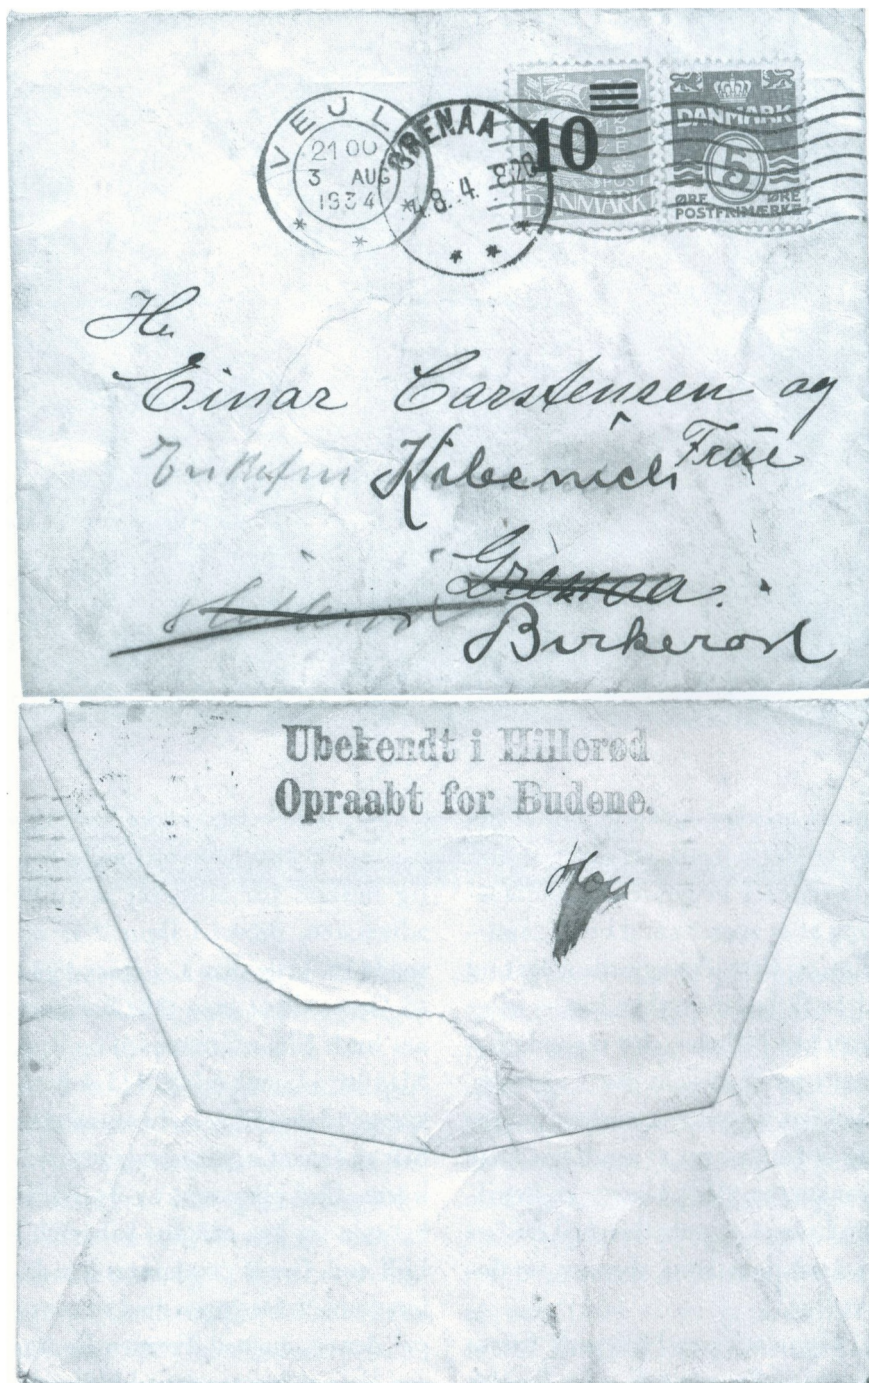 VEJL
21 00
3 AUG
1934
GRENAA
4.8.4. 820
10
POST
DANMARK
DANMARK
5
ØRE ØRE
POSTFRIMÆRKE
Hr.
Einar Carstensen og
Frue
Grenaa.
Birkerød
Ubekendt i Hillerød
Opraabt for Budene.